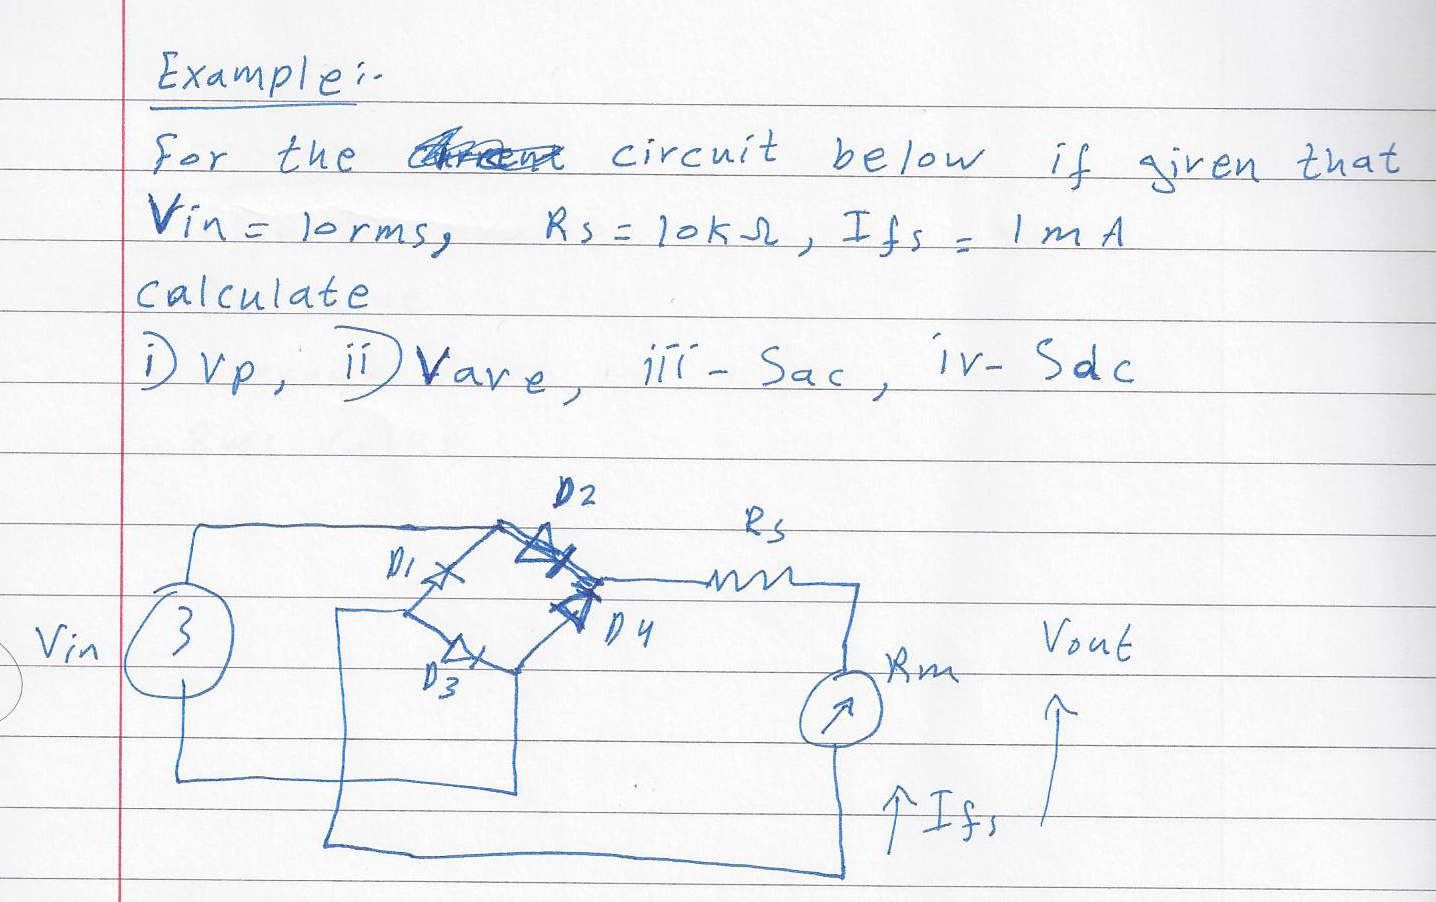 Example:-
For the circuit below if given that
Vin = 10 rms, Rs = 10kΩ, Ifs = 1mA
calculate
i) Vp, ii) Vave, iii - Sac, iv - Sdc
D2
Rs
D1
D4
Vin
Vout
Rm
D3
Ifs